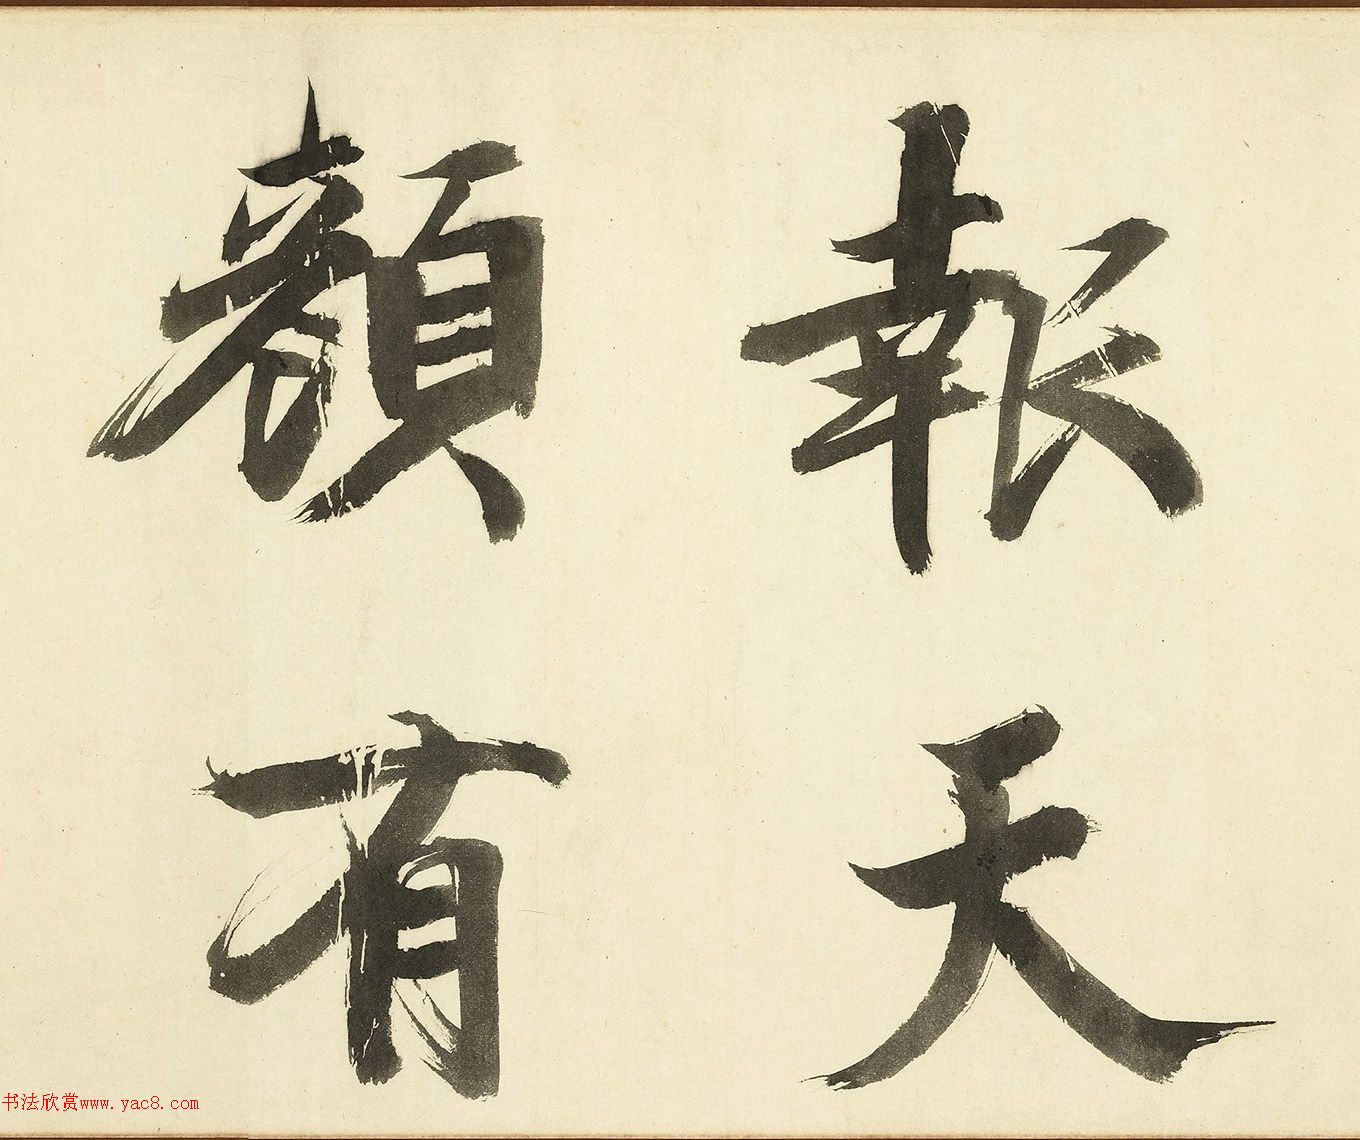 報天
顏有
书法欣赏www.yac8.com